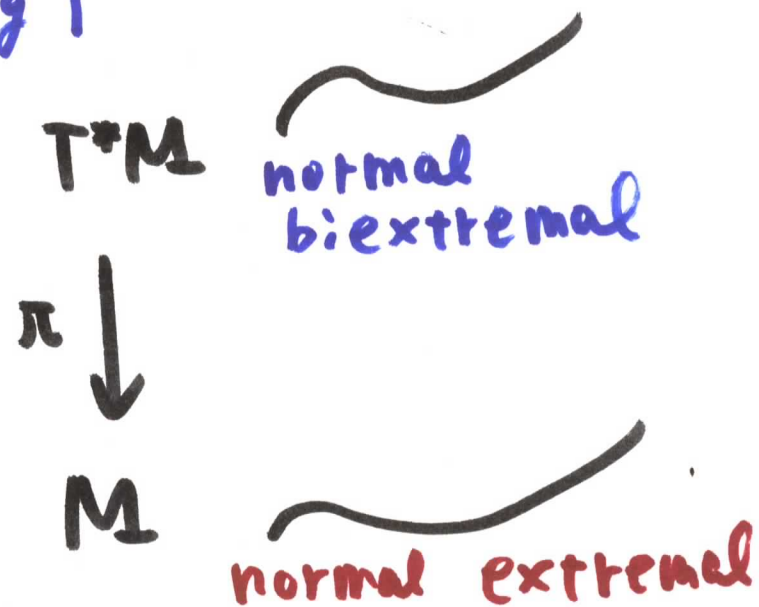 T*M
normal
biextremal
π
M
normal extremal